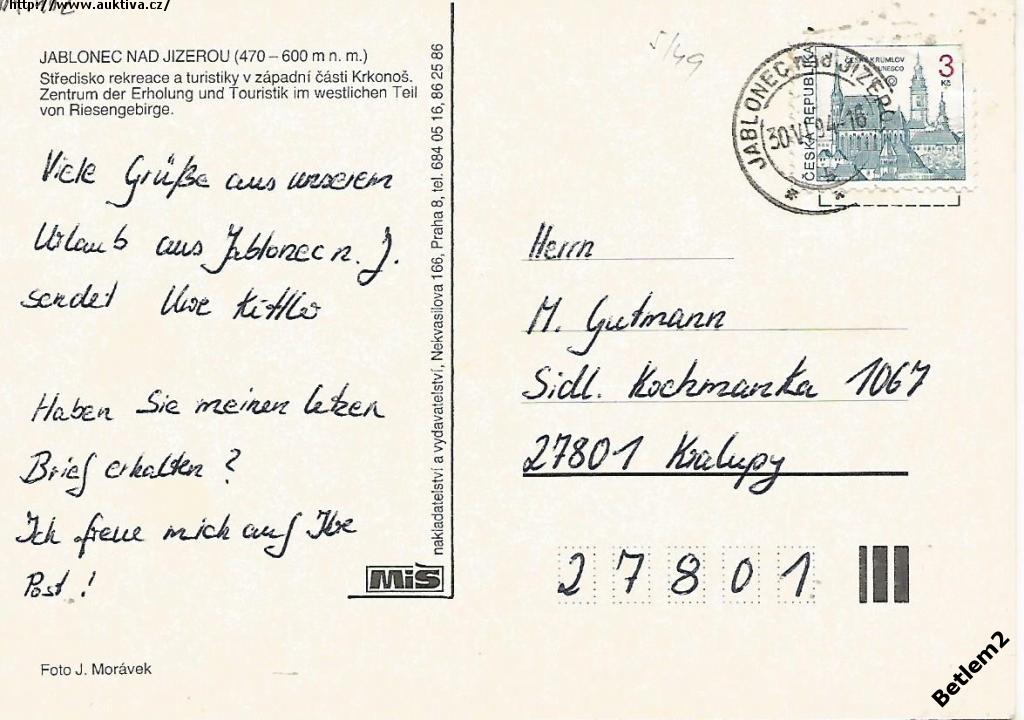 http://www.auktiva.cz/
JABLONEC NAD JIZEROU (470 – 600 m n. m.)
Středisko rekreace a turistiky v západní části Krkonoš.
Zentrum der Erholung und Touristik im westlichen Teil
von Riesengebirge.
Viele Grüße aus unserem
Urlaub aus Jablonec n. J.
sendet Uwe
Haben Sie meinen letzen
Brief erhalten ?
Ich freue mich auf Ihre
Post !
Foto J. Morávek
nakladatelství a vydavatelství, Nekvasilova 166, Praha 8, tel. 684 05 16, 86 25 86
MiŠ
5/49
JABLONEC nad JIZEROU
30.VI.94-16
b
ČESKÁ REPUBLIKA
ČESKÝ KRUMLOV
UNESCO
3
Kč
Herrn
M. Gutmann
Sidl. Kochmanka 1067
27801 Kralupy
27801
Betlem2